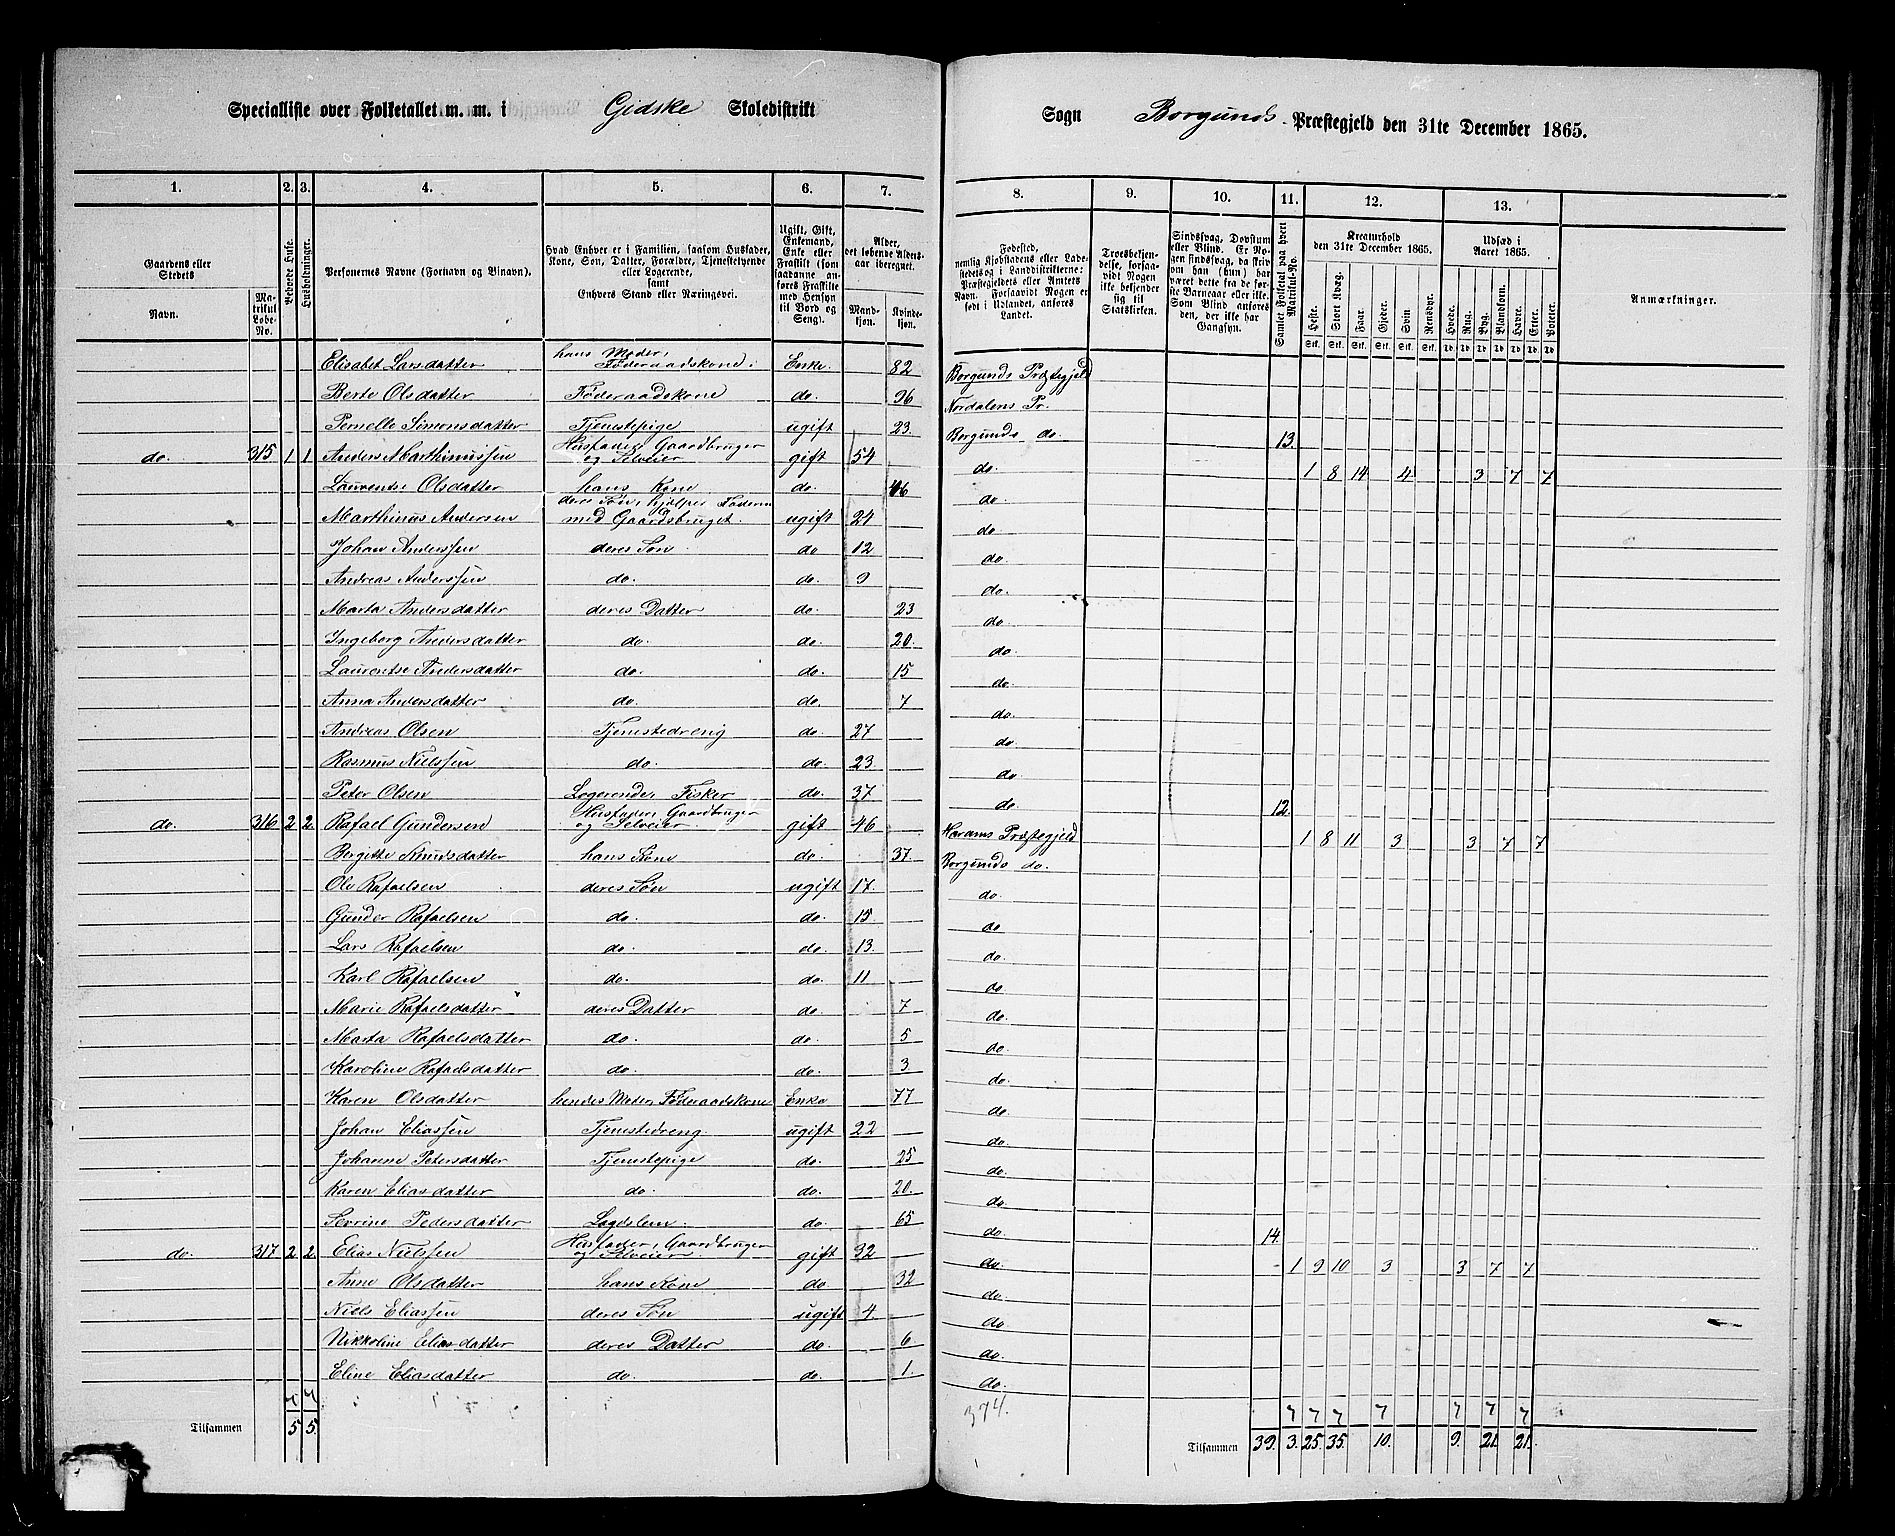 Specialliste over Folketallet m. m. i Gidske Skoledistrikt
Sogn Borgunds Præstegjeld den 31te December 1865.
1. 2. 3. 4. 5. 6. 7.
8. 9. 10. 11. 12. 13.
Gaardens eller Stedets
Navn.
Matrikul Løbe-No.
Beboede Huse.
Husholdninger.
Personernes Navne (Fornavn og Tilnavn).
Hvad Enhver er i Familien, saasom Husfader, Kone, Søn, Datter, Forældre, Tjenestetyende eller Logerende, samt Enhvers Stand eller Næringsvei.
Ugift, Gift, Enkemand, Enke eller Fraskilt (som saadanne anføres Fraskilte med Hensyn til Bord og Seng).
Alder, det løbende Aldersaar iberegnet.
Mandkjøn. Kvindekjøn.
Fødested, nemlig Kjøbstadens eller Ladestedets og i Landdistrikterne: Præstegjeldets eller Amtets Navn. Forsaavidt Nogen er født i Udlandet, anføres Landet.
Troesbekjendelse, forsaavidt Nogen ikke bekjender sig til Statskirken.
Sindssvag, Døvstum eller Blind. Er Nogen sindssvag, da skriv om han (hun) har været dette fra de første Barneaar eller ikke. Som Blind anføres den, der ikke har Gangsyn.
Samlet Folketal paa hvert Matrikul-No.
Kreaturhold den 31te December 1865.
Heste. Stort Kvæg. Faar. Gjeder. Svin. Rensdyr.
Udsæd i Aaret 1865.
Hvede. Rug. Byg. Blandkorn. Havre. Erter. Poteter.
Anmærkninger.
Elisabet Larsdatter hans Moder, Føderaadskone. Enke. 82 Borgunds Præstegjeld
Berte Olsdatter Føderaadskone do. 96 Nordalens Pr.
Pernelle Simonsdatter Tjenestepige ugift 23. Borgunds do. 13.
do. 315 1 1 Anders Marthinussen Husfader, Gaardbruger og Selveier gift 54 do. 1 8 14 4 3 7 7
Laurentse Olsdatter hans Kone do. 46 do.
Marthinus Andersen deres Søn, hjelper Faderen med Gaardsbruget. ugift 24 do
Johan Anderssen deres Søn. do 12 do.
Andreas Anderssen do. do. 9 do.
Marta Andersdatter deres Datter do. 23 do.
Ingeborg Andersdatter do. do. 20. do.
Laurentse Andersdatter do. do. 15 do.
Anna Andersdatter do. do. 7 do.
Andreas Olsen Tjenestedreng do. 27 do.
Rasmus Nielssen do. do. 23 do.
Peter Olsen Logerende, Fisker do. 37 do. 12.
do. 316 2 2. Rafael Gundersen Husfader, Gaardbruger og Selveier. gift 46 Harams Præstegjeld 1 8 11 3 3 7 7
Bergitte Knudsdatter hans Kone do. 37. Borgunds do.
Ole Rafaelsen deres Søn ugift 17. do
Gunder Rafaelsen do. do. 15. do
Lars Rafaelsen do. do. 13. do.
Karl Rafaelsen do. do. 11 do.
Marie Rafaelsdatter deres Datter do. 7 do.
Marta Rafaelsdatter do. do. 5 do.
Karoline Rafaelsdatter do. do. 3 do.
Karen Olsdatter hendes Moder, Føderaadskone Enke 77 do.
Johan Eliassen Tjenestedreng. ugift 22 do.
Johanne Petersdatter Tjenestepige do. 25 do.
Karen Eliasdatter do. do. 20. do.
Sevrine Pedersdatter Lagdslem. do. 65 do. 14.
do. 317 2 2 Elias Nielssen Husfader, Gaardbruger og Selveier. gift 32 do. 1 9 10 3 3 7 7
Anne Olsdatter hans Kone do. 32 do.
Niels Eliassen deres Søn ugift 4. do.
Nikkoline Eliasdatter deres Datter do. 6 do.
Eline Eliasdatter do. do. 1 do.
374.
Tilsammen 5 5. Tilsammen 39. 3. 25. 35. 10. 9. 21 21.